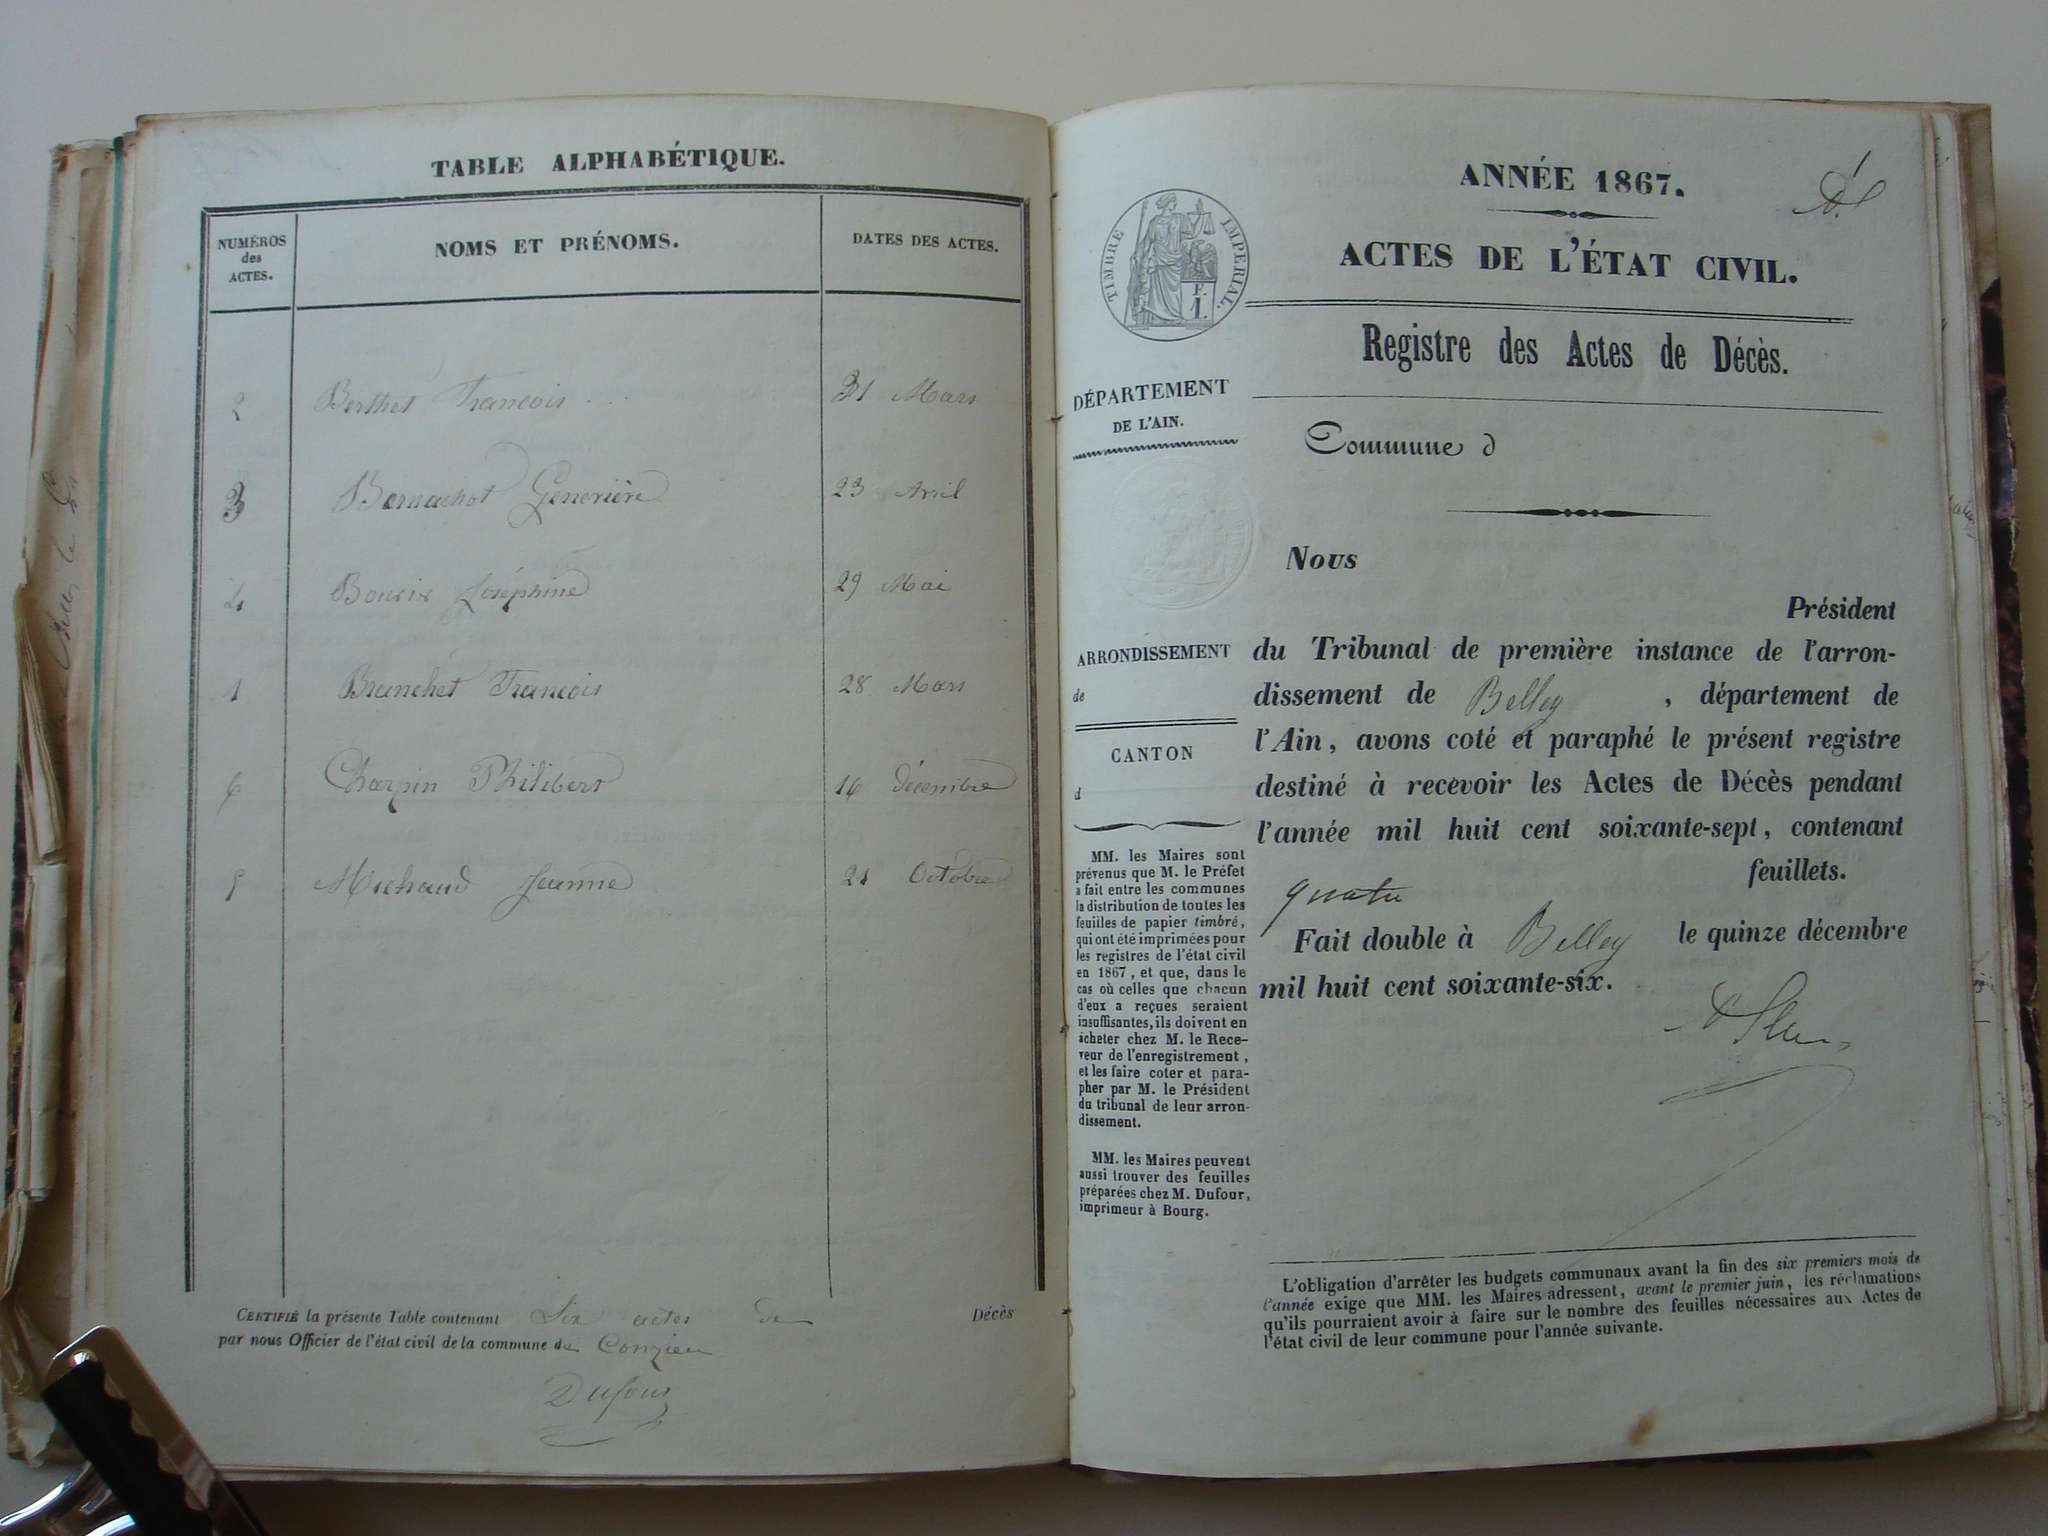 TABLE ALPHABÉTIQUE.
NUMÉROS des ACTES.
NOMS ET PRÉNOMS.
DATES DES ACTES.
2 Berthet François 31 Mars
3 Bernachot Geneviève 23 Avril
4 Bouvix Joséphine 29 Mai
1 Branchet François 28 Mars
6 Charpin Philibert 16 Décembre
5 Michaud Jeanne 21 Octobre
CERTIFIÉ la présente Table contenant Six actes de Décès
par nous Officier de l'état civil de la commune de Conzieu
Dufour
ANNÉE 1867.
ACTES DE L'ÉTAT CIVIL.
TIMBRE IMPÉRIAL.
F. 1.
Registre des Actes de Décès.
DÉPARTEMENT
DE L'AIN.
Commune d
Nous
Président
ARRONDISSEMENT
de
CANTON
d
du Tribunal de première instance de l'arron-
dissement de Belley, département de
l'Ain, avons coté et paraphé le présent registre
destiné à recevoir les Actes de Décès pendant
l'année mil huit cent soixante-sept, contenant
quatre feuillets.
Fait double à Belley le quinze décembre
mil huit cent soixante-six.
MM. les Maires sont
prévenus que M. le Préfet
a fait entre les communes
la distribution de toutes les
feuilles de papier timbré,
qui ont été imprimées pour
les registres de l'état civil
en 1867, et que, dans le
cas où celles que chacun
d'eux a reçues seraient
insuffisantes, ils doivent en
acheter chez M. le Rece-
veur de l'enregistrement,
et les faire coter et para-
pher par M. le Président
du tribunal de leur arron-
dissement.
MM. les Maires peuvent
aussi trouver des feuilles
préparées chez M. Dufour,
imprimeur à Bourg.
L'obligation d'arrêter les budgets communaux avant la fin des six premiers mois de
l'année exige que MM. les Maires adressent, avant le premier juin, les réclamations
qu'ils pourraient avoir à faire sur le nombre des feuilles nécessaires aux Actes de
l'état civil de leur commune pour l'année suivante.